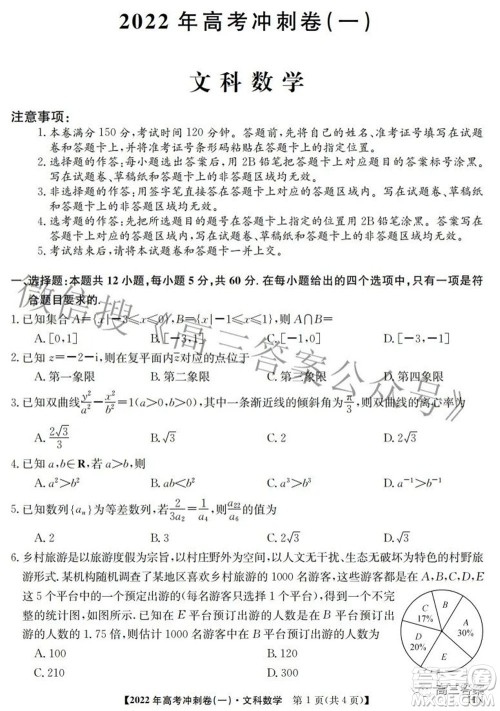 2022 年高考冲刺卷(一)
文科数学
注意事项:
1. 本卷满分 150 分,考试时间 120 分钟。答题前,先将自己的姓名、准考证号填写在试题卷和答题卡上,并将准考证号条形码粘贴在答题卡上的指定位置。
2. 选择题的作答:每小题选出答案后,用 2B 铅笔把答题卡上对应题目的答案标号涂黑。写在试题卷、草稿纸和答题卡上的非答题区域均无效。
3. 非选择题的作答:用签字笔直接答在答题卡上对应的答题区域内。写在试题卷、草稿纸和答题卡上的非答题区域均无效。
4. 选考题的作答:先把所选题目的题号在答题卡上指定的位置用 2B 铅笔涂黑。答案写在答题卡上对应的答题区域内,写在试题卷、草稿纸和答题卡上的非答题区域均无效。
5. 考试结束后,请将本试题卷和答题卡一并上交。
一、选择题:本题共 12 小题,每小题 5 分,共 60 分.在每小题给出的四个选项中,只有一项是符合题目要求的.
1. 已知集合 A={x|-3≤x≤0},B={x|-1≤x≤1},则 A∩B=
A. [0,1] B. [-3,1] C. [-1,0] D. [-3,-1]
2. 已知 z=-2-i,则在复平面内 z̄ 对应的点位于
A. 第一象限 B. 第二象限 C. 第三象限 D. 第四象限
3. 已知双曲线 y²/a²-x²/b²=1(a>0,b>0),其中一条渐近线的倾斜角为 π/3,则双曲线的离心率为
A. 2√3/3 B. √3 C. 2 D. 2√3
4. 已知 a,b∈R,若 a>b,则
A. a²>b² B. ab<b² C. a³>b³ D. a^½>b^½
5. 已知数列{aₙ}为等差数列,若 2/3a₂=1/a₄,则 a₂₂/a₆ 的值为
A. 2 B. 3 C. 4 D. 5
6. 乡村旅游是以旅游度假为宗旨,以村庄野外为空间,以人文无干扰、生态无破坏为特色的村野旅游形式. 某机构随机调查了某地区喜欢乡村旅游的 1000 名游客,这些游客都是在 A,B,C,D,E 这 5 个平台中的一个预订出游的(每名游客只选择 1 个平台),得到如下不完整的统计图. 如图所示. 已知在 E 平台预订出游的人数为在 B 平台预订出游的人数的 1.75 倍,则估计 1000 名游客中在 B 平台预订出游的人数为
A. 100 B. 120
C. 210 D. 300
C 17%
B
A 20%
D 30%
E
【2022 年高考冲刺卷(一)·文科数学 第 1 页(共 4 页)】
微信搜《高三答案公众号》
高三答案